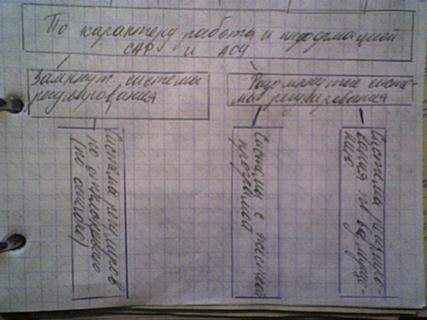 По характеру работа и информацией
САР и АСУ
Замкнут. системы
регулирования
Разомкнутые систе-
мы регулирования
Система регулиров
по отклонению
(по ошибке)
Системы с жесткой
программой
Система